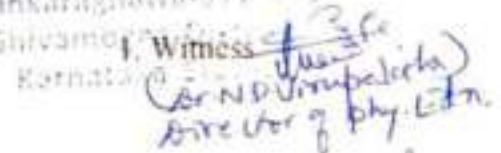 Shivamo
1. Witness
Karnata
(Dr ND Virupaksha)
Director of Phy. Edn.